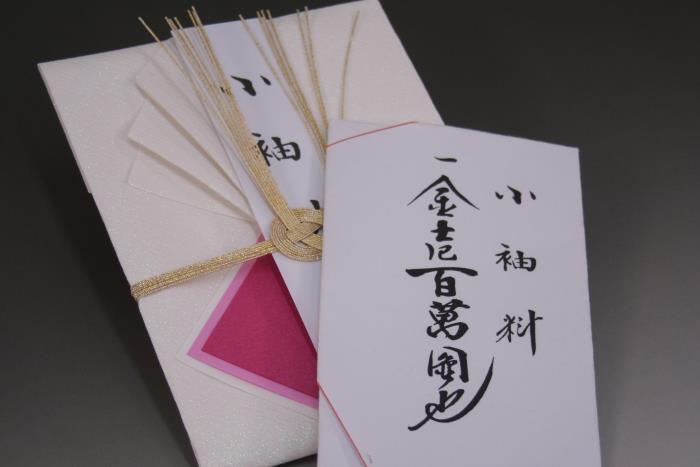 小袖料
一金壱百萬圓也
小袖